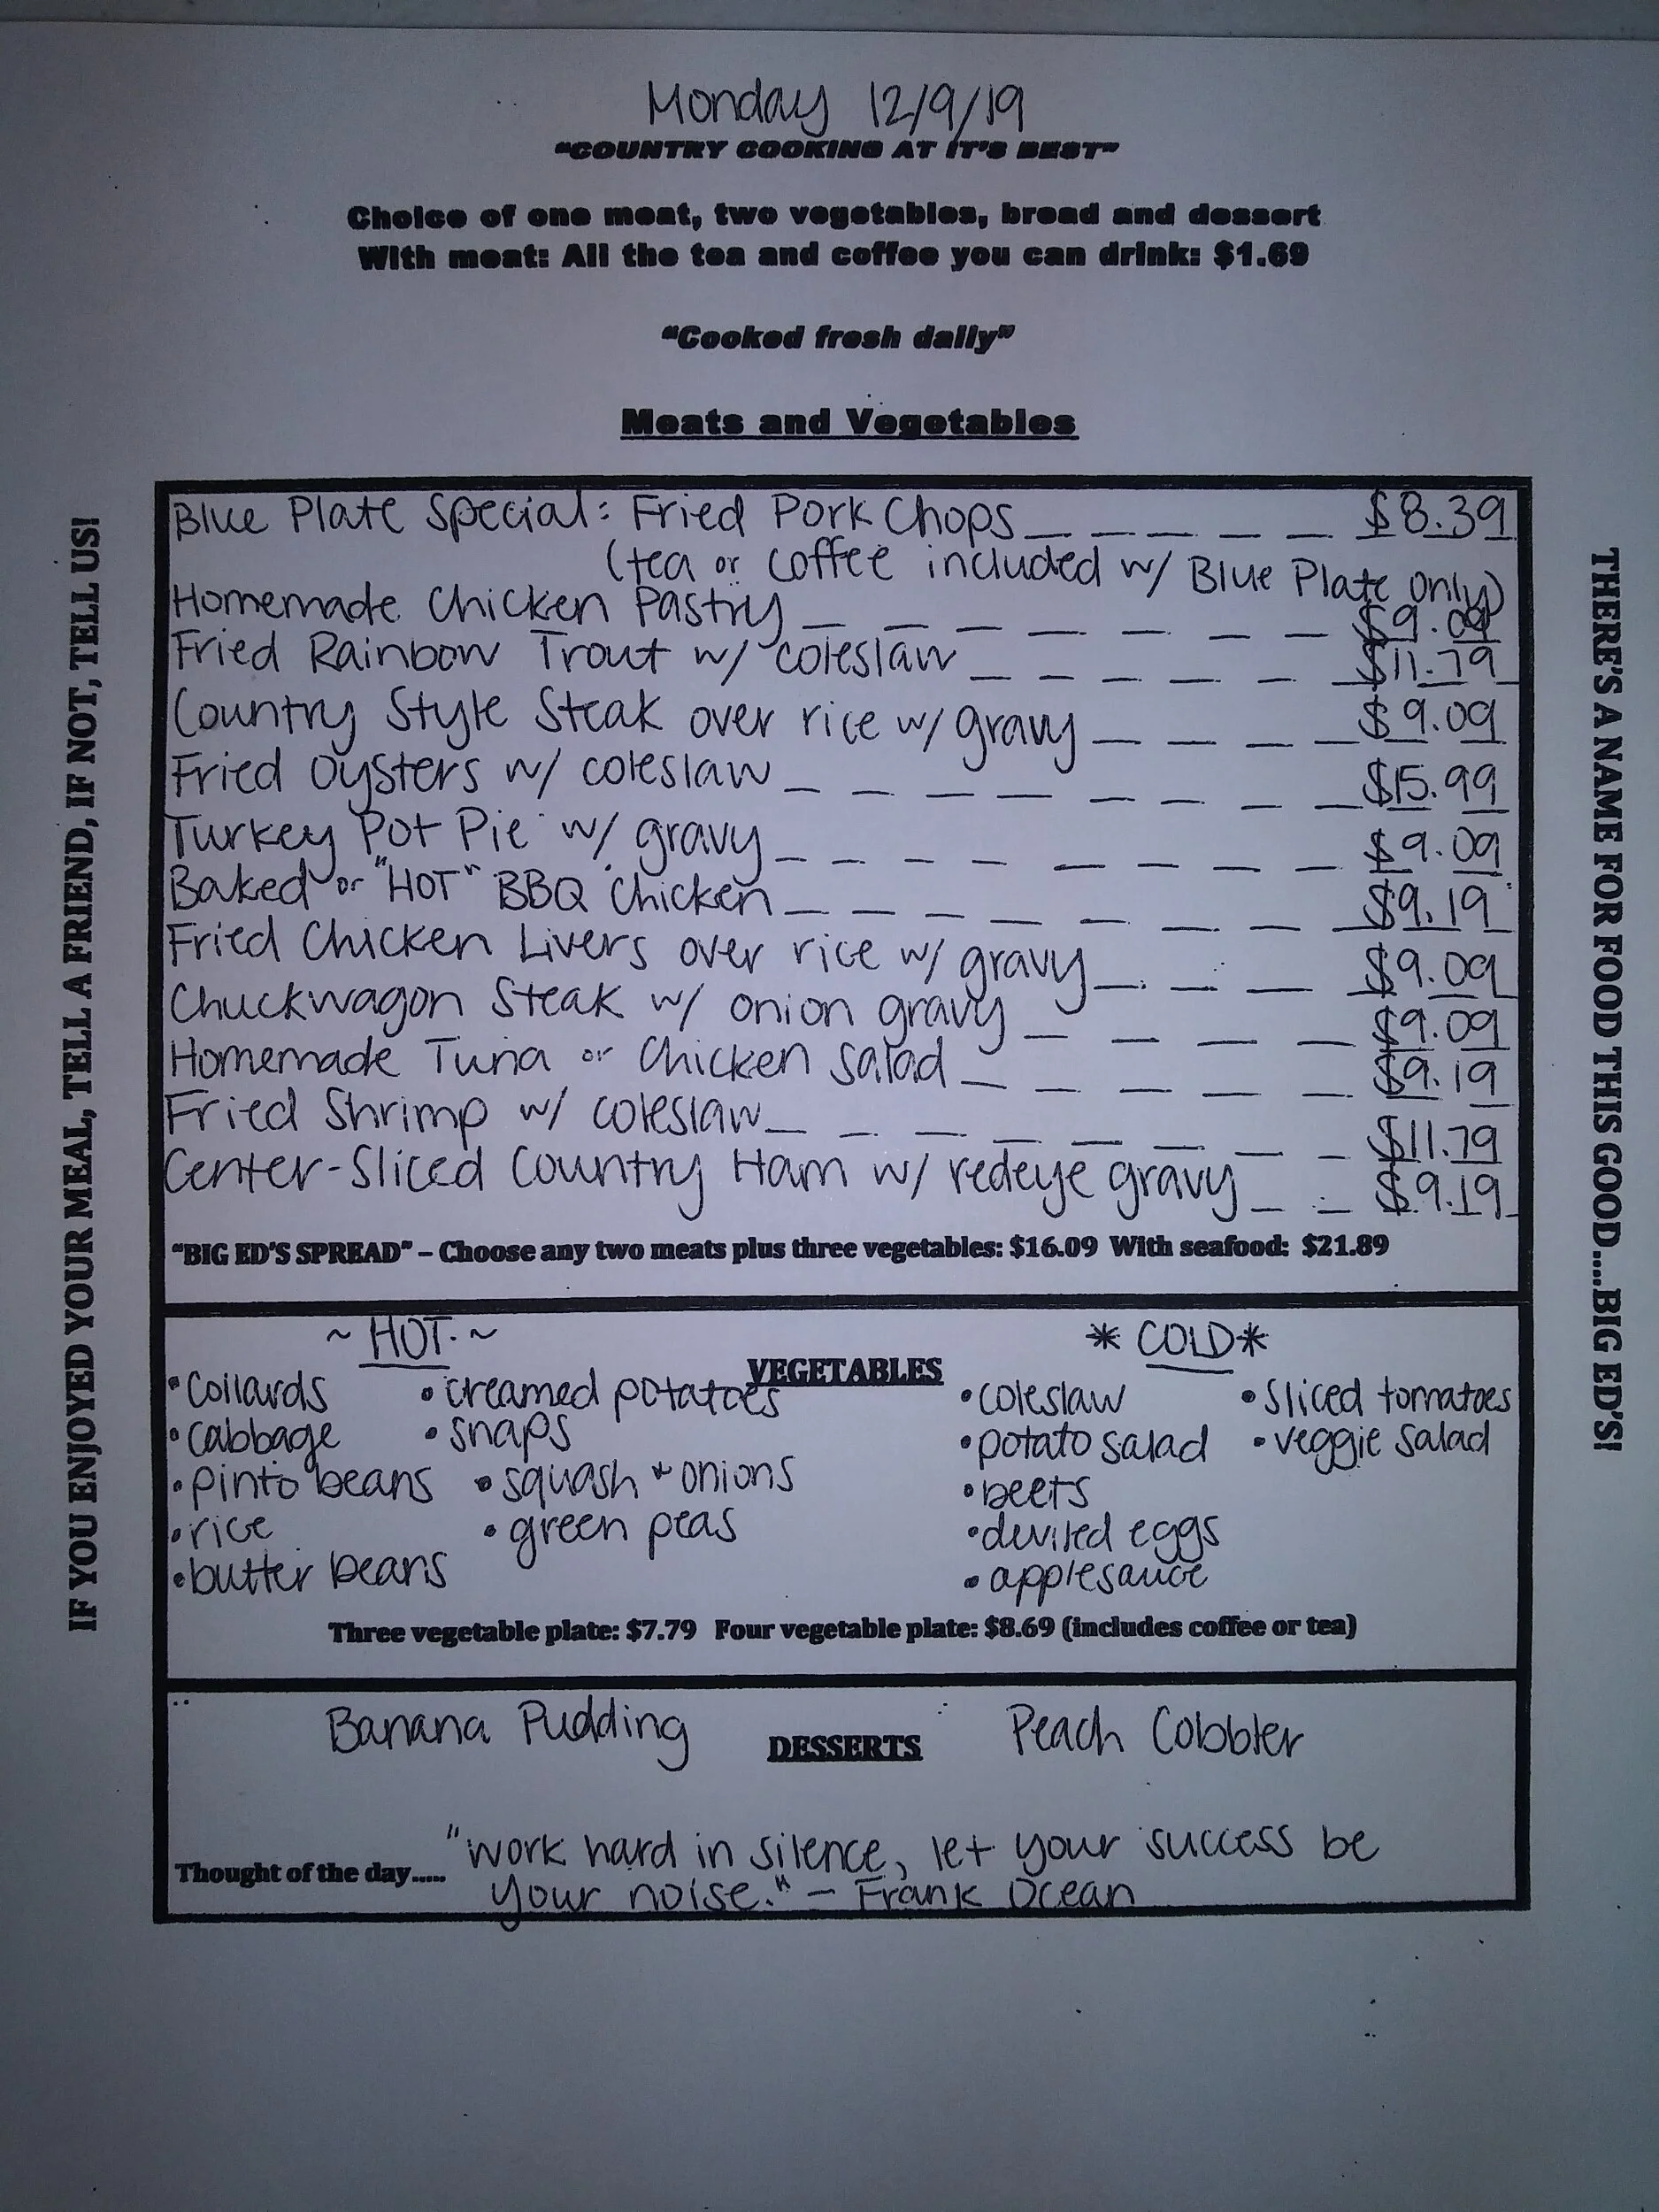 Monday 12/9/19
"COUNTRY COOKING AT IT'S BEST"
Choice of one meat, two vegetables, bread and dessert
With meat: All the tea and coffee you can drink: $1.69
"Cooked fresh daily"
Meats and Vegetables
Blue Plate Special: Fried Pork Chops _ _ _ _ _ $8.39
(tea or coffee included w/ Blue Plate only)
Homemade Chicken Pastry _ _ _ _ _ _ _ $9.09
Fried Rainbow Trout w/ coleslaw _ _ _ _ _ $11.79
Country Style Steak over rice w/ gravy _ _ _ _ $9.09
Fried Oysters w/ coleslaw _ _ _ _ _ _ _ _ $15.99
Turkey Pot Pie w/ gravy _ _ _ _ _ _ _ _ $9.09
Baked or "HOT" BBQ Chicken _ _ _ _ _ _ _ _ $9.19
Fried Chicken Livers over rice w/ gravy _ _ _ _ $9.09
Chuckwagon Steak w/ onion gravy _ _ _ _ _ $9.09
Homemade Tuna or Chicken Salad _ _ _ _ _ _ $9.19
Fried Shrimp w/ coleslaw _ _ _ _ _ _ _ _ $11.79
Center-Sliced Country Ham w/ redeye gravy _ _ $9.19
"BIG ED'S SPREAD" – Choose any two meats plus three vegetables: $16.09 With seafood: $21.89
~ HOT ~ * COLD *
VEGETABLES
• Collards • creamed potatoes • coleslaw • Sliced tomatoes
• cabbage • snaps • potato salad • veggie salad
• pinto beans • squash + onions • beets
• rice • green peas • deviled eggs
• butter beans • applesauce
Three vegetable plate: $7.79 Four vegetable plate: $8.69 (includes coffee or tea)
Banana Pudding DESSERTS Peach Cobbler
Thought of the day..... "work hard in silence, let your success be
your noise." - Frank Ocean
IF YOU ENJOYED YOUR MEAL, TELL A FRIEND, IF NOT, TELL US!
THERE'S A NAME FOR FOOD THIS GOOD....BIG ED'S!